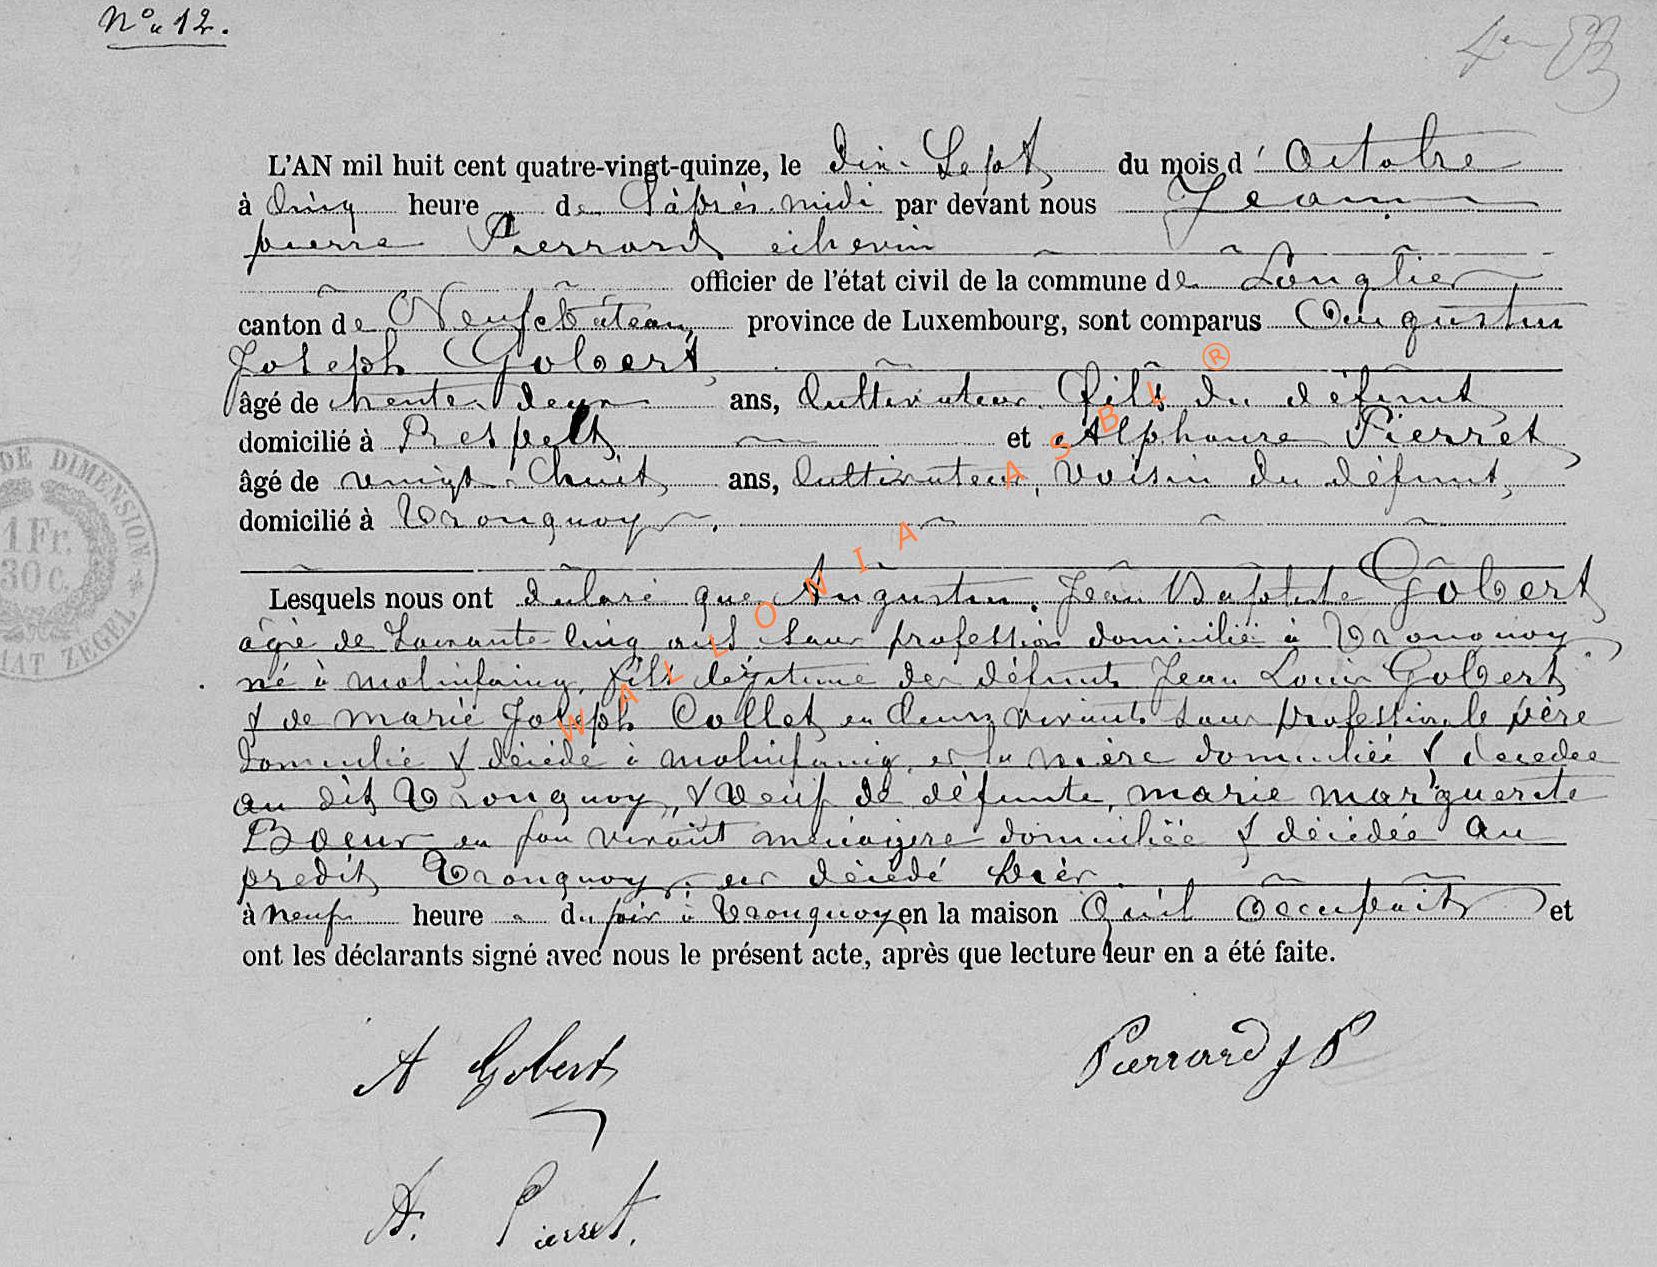 N° 12.
L'AN mil huit cent quatre-vingt-quinze, le dix-sept du mois d'Octobre
à Cinq heure de l'après-midi par devant nous Jean
pierre Pierrard échevin
officier de l'état civil de la commune de Longlier
canton de Neufchâteau, province de Luxembourg, sont comparus Augustin
Joseph Gobert,
âgé de trente deux ans, Cultivateur, fils du défunt
domicilié à Respelt et Alphonse Pierret
âgé de vingt-huit ans, Cultivateur, voisin du défunt,
domicilié à Tronquoy,
Lesquels nous ont déclaré que Augustin, Jean Baptiste Gobert
agé de cinq ans, sans profession domicilié à Tronquoy
né à molinfaing, fils légitime de défunts Jean Louis Gobert
& de marie Joseph Collet en leurs vivants sans profession, le père
domicilié & décédé à molinfaing, et la mère domiciliée & decedée
au dit Tronquoy, & veuf de défunte, marie marguerite
Boeur en son vivant ménagère domiciliée & décédée au
predit Tronquoy, est décédé hier
à neuf heure du soir à Tronquoy en la maison Qu'il Occupait et
ont les déclarants signé avec nous le présent acte, après que lecture leur en a été faite.
A Gobert
Pierrard J P
A. Pierret.
DE DIMENSION
1 Fr.
30 c.
ZEGEL
WALLONIA ASBL ®